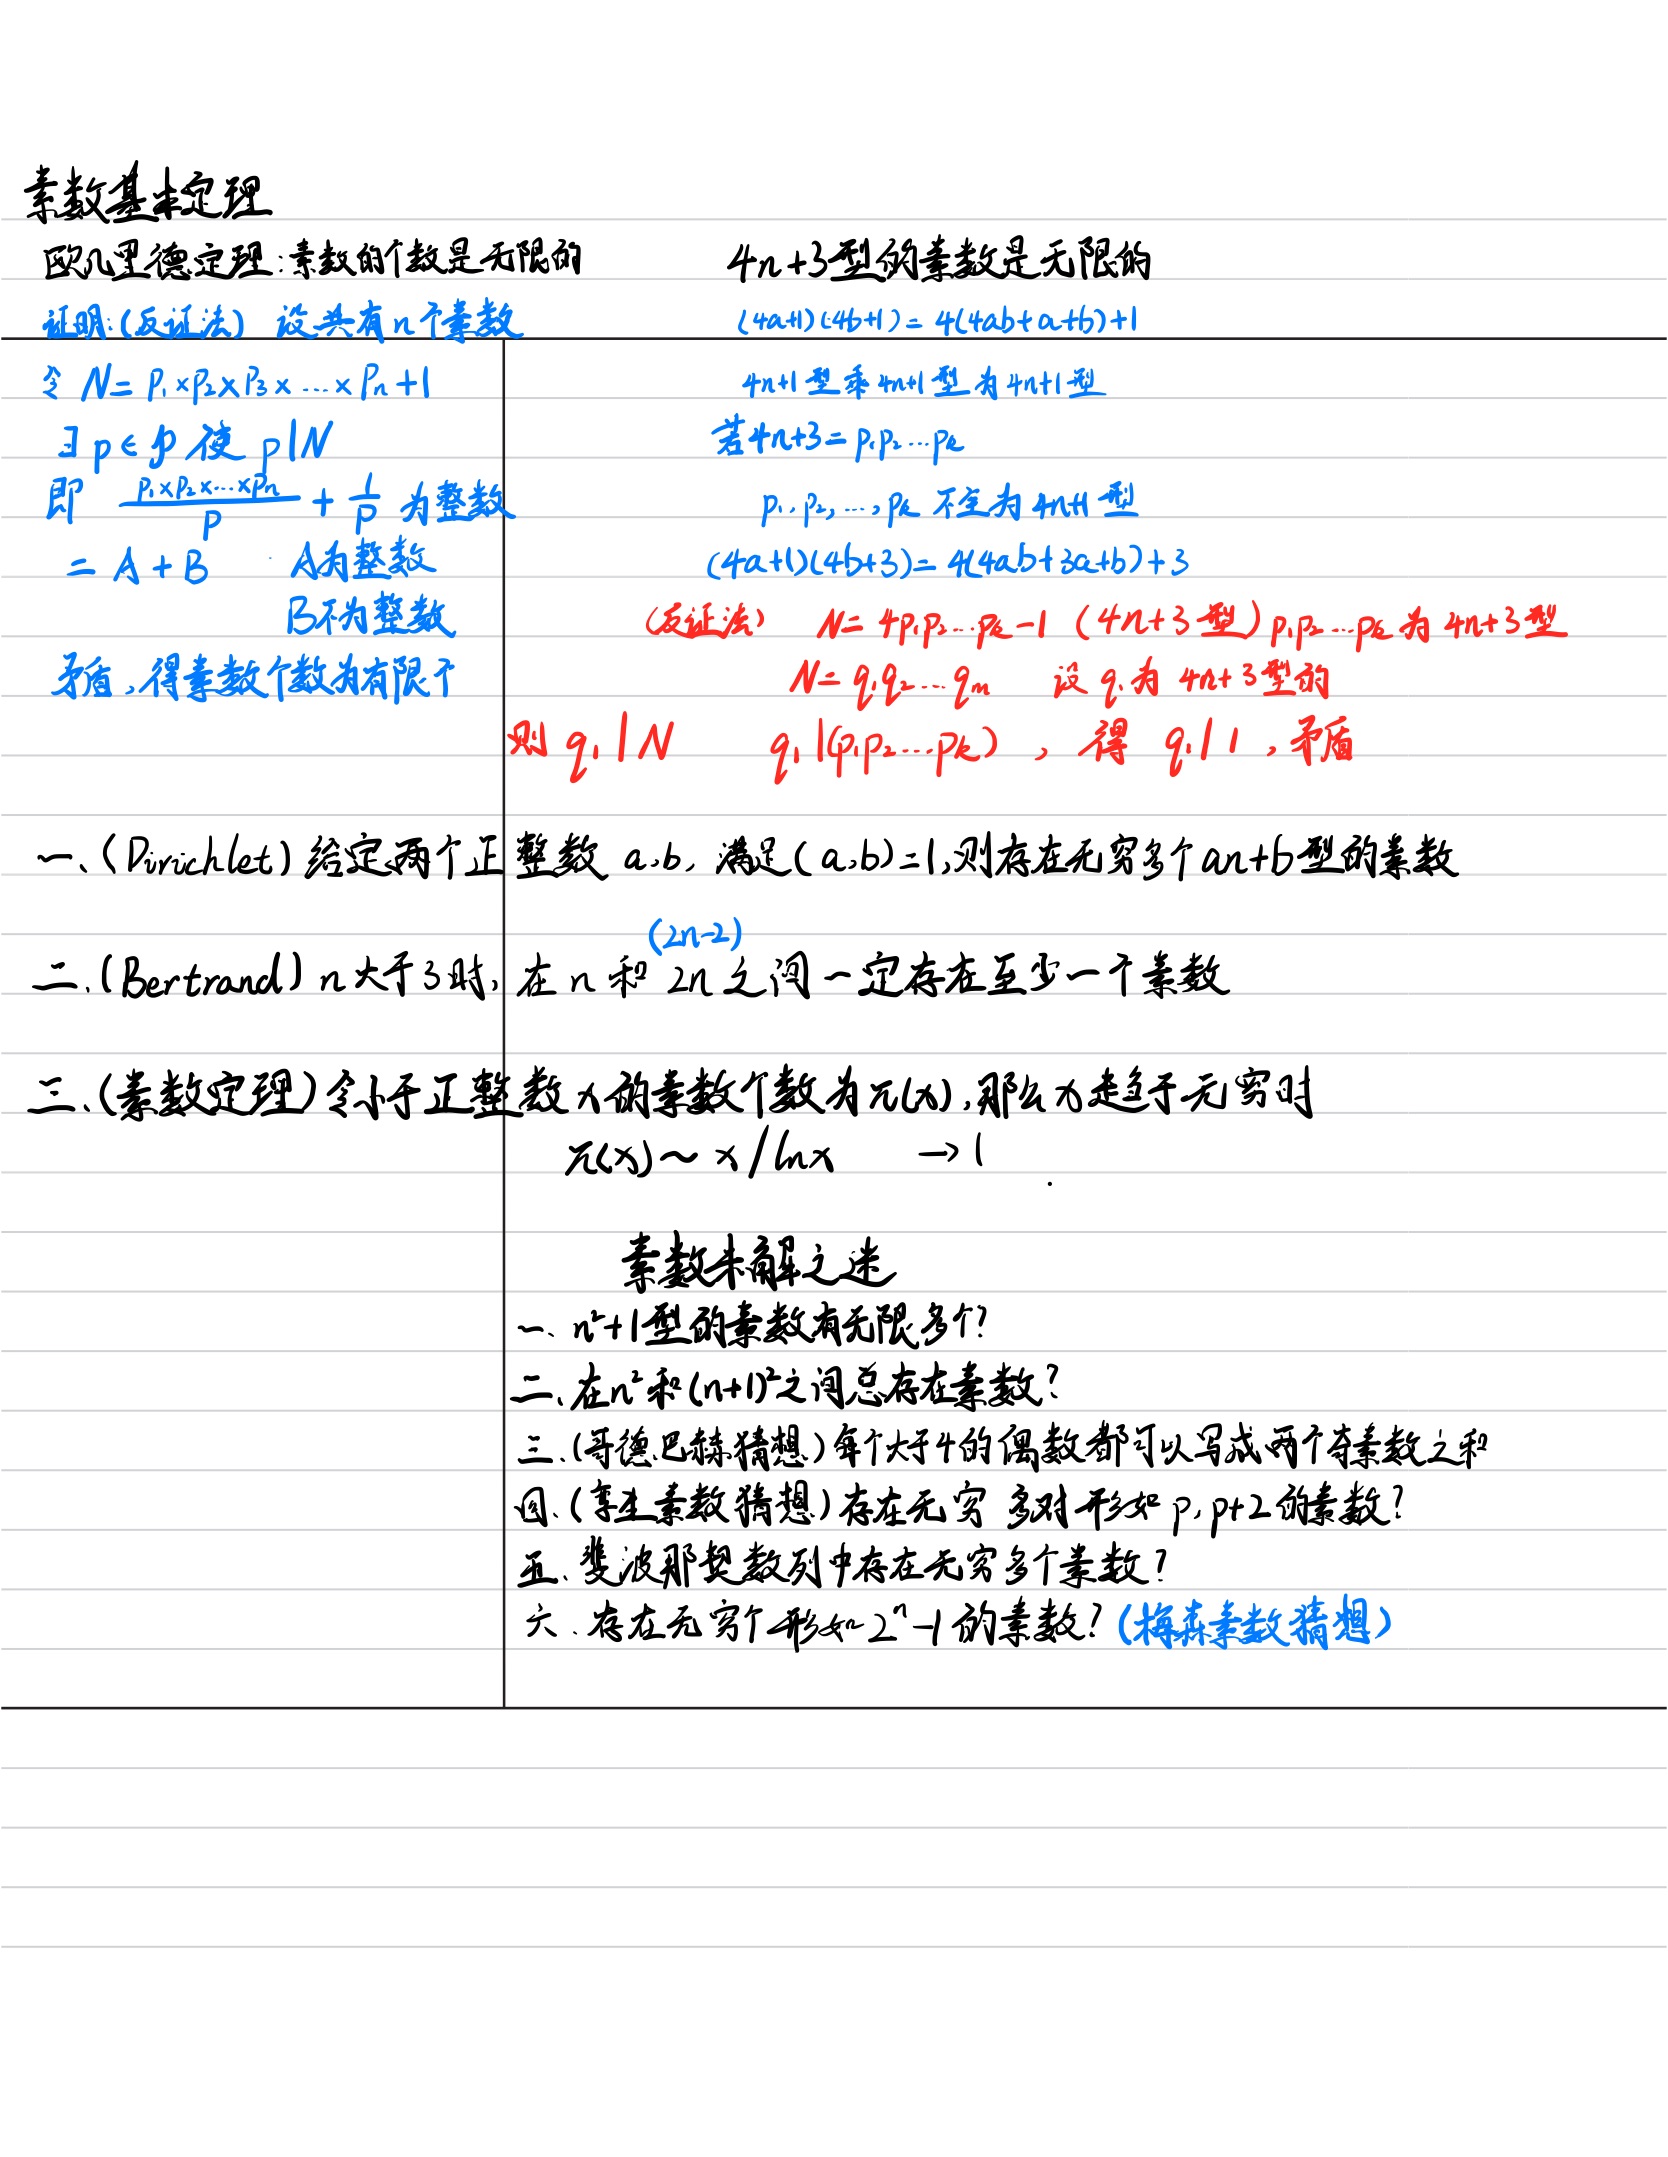 素数基本定理
欧几里德定理:素数的个数是无限的
证明:(反证法) 设共有n个素数
令 N= P₁×P₂×P₃×…×Pₙ+1
∃ p∈℘ 使 p|N
即 (P₁×P₂×…×Pₙ)/P + 1/P 为整数
= A+B A为整数
B不为整数
矛盾,得素数个数为有限个
4n+3型的素数是无限的
(4a+1)(4b+1)= 4(4ab+a+b)+1
4n+1型乘4n+1型为4n+1型
若4n+3= p₁p₂…pₖ
p₁,p₂,…,pₖ 不全为4n+1型
(4a+1)(4b+3)= 4(4ab+3a+b)+3
(反证法) N= 4p₁p₂…pₖ-1 (4n+3型) p₁p₂…pₖ为4n+3型
N= q₁q₂…qₘ 设q₁为4n+3型的
则 q₁|N q₁|(p₁p₂…pₖ), 得 q₁|1,矛盾
一、(Dirichlet)给定两个正整数 a,b, 满足(a,b)=1,则存在无穷多个an+b型的素数
(2n-2)
二.(Bertrand) n大于3时, 在n和2n之间一定存在至少一个素数
三、(素数定理)令小于正整数x的素数个数为π(x),那么x走趋于无穷时
π(x)~x/lnx →1
素数未解之迷
一、n²+1型的素数有无限多个?
二、在n²和(n+1)²之间总存在素数?
三.(哥德巴赫猜想)每个大于4的偶数都可以写成两个奇素数之和
四.(孪生素数猜想)存在无穷多对形如p,p+2的素数?
五.斐波那契数列中存在无穷多个素数?
六.存在无穷个形如2ⁿ-1的素数?(梅森素数猜想)